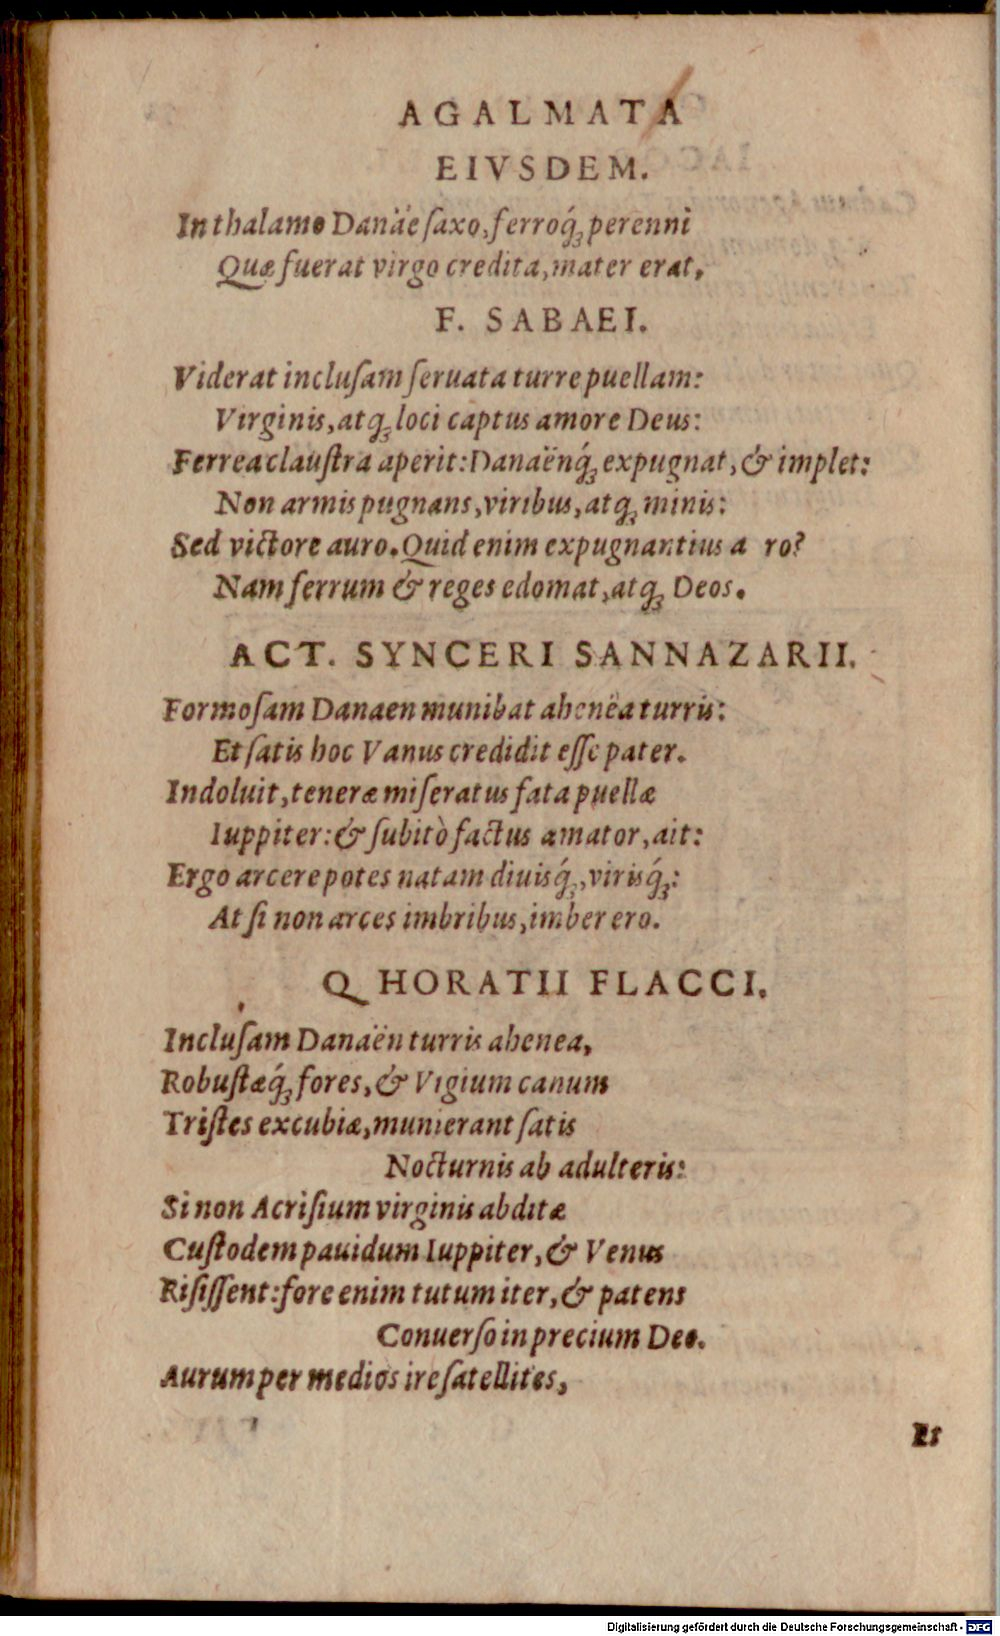 AGALMATA
EIVSDEM.
In thalamo Danäe ſaxo, ferroq́; perenni
Quæ fuerat virgo credita, mater erat,
F. SABAEI.
Viderat incluſam ſeruata turre puellam:
Virginis, atq; loci captus amore Deus:
Ferrea clauſtra aperit: Danaënq́; expugnat, & implet:
Non armis pugnans, viribus, atq; minis:
Sed victore auro. Quid enim expugnantius a ro?
Nam ferrum & reges edomat, atq; Deos.
ACT. SYNCERI SANNAZARII.
Formoſam Danaen munibat ahenëa turris:
Et ſatis hoc Vanus credidit eſſe pater.
Indoluit, teneræ miſeratus fata puellæ
Iuppiter: & ſubitò factus amator, ait:
Ergo arcere potes natam diuisq́;, virisq́;:
At ſi non arces imbribus, imber ero.
Q HORATII FLACCI.
Incluſam Danaën turris ahenea,
Robuſtæq́; fores, & Vigium canum
Triſtes excubiæ, munierant ſatis
Nocturnis ab adulteris:
Si non Acriſium virginis abditæ
Cuſtodem pauidum Iuppiter, & Venus
Riſiſſent: fore enim tutum iter, & patens
Conuerſo in precium Deo.
Aurum per medios ire ſatellites,
Et
Digitalisierung gefördert durch die Deutsche Forschungsgemeinschaft - DFG